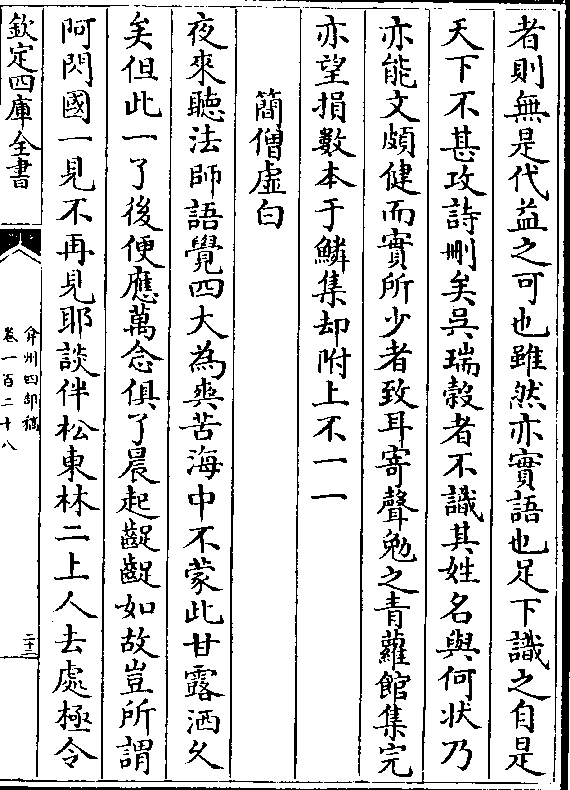 者則無是代益之可也雖然亦實語也足下識之自是
天下不甚攻詩刪矣吳瑞穀者不識其姓名與何狀乃
亦能文頗健而實所少者致耳寄聲勉之青蘿館集完
亦望損數本于鱗集却附上不一一
簡僧虛白
夜來聽法師語覺四大為爽苦海中不蒙此甘露洒久
矣但此一了後便應萬念俱了晨起齷齪如故豈所謂
阿閃國一見不再見耶談伴松東林二上人去處極令
欽定四庫全書
弇州四部稿
卷一百二十八
二十三